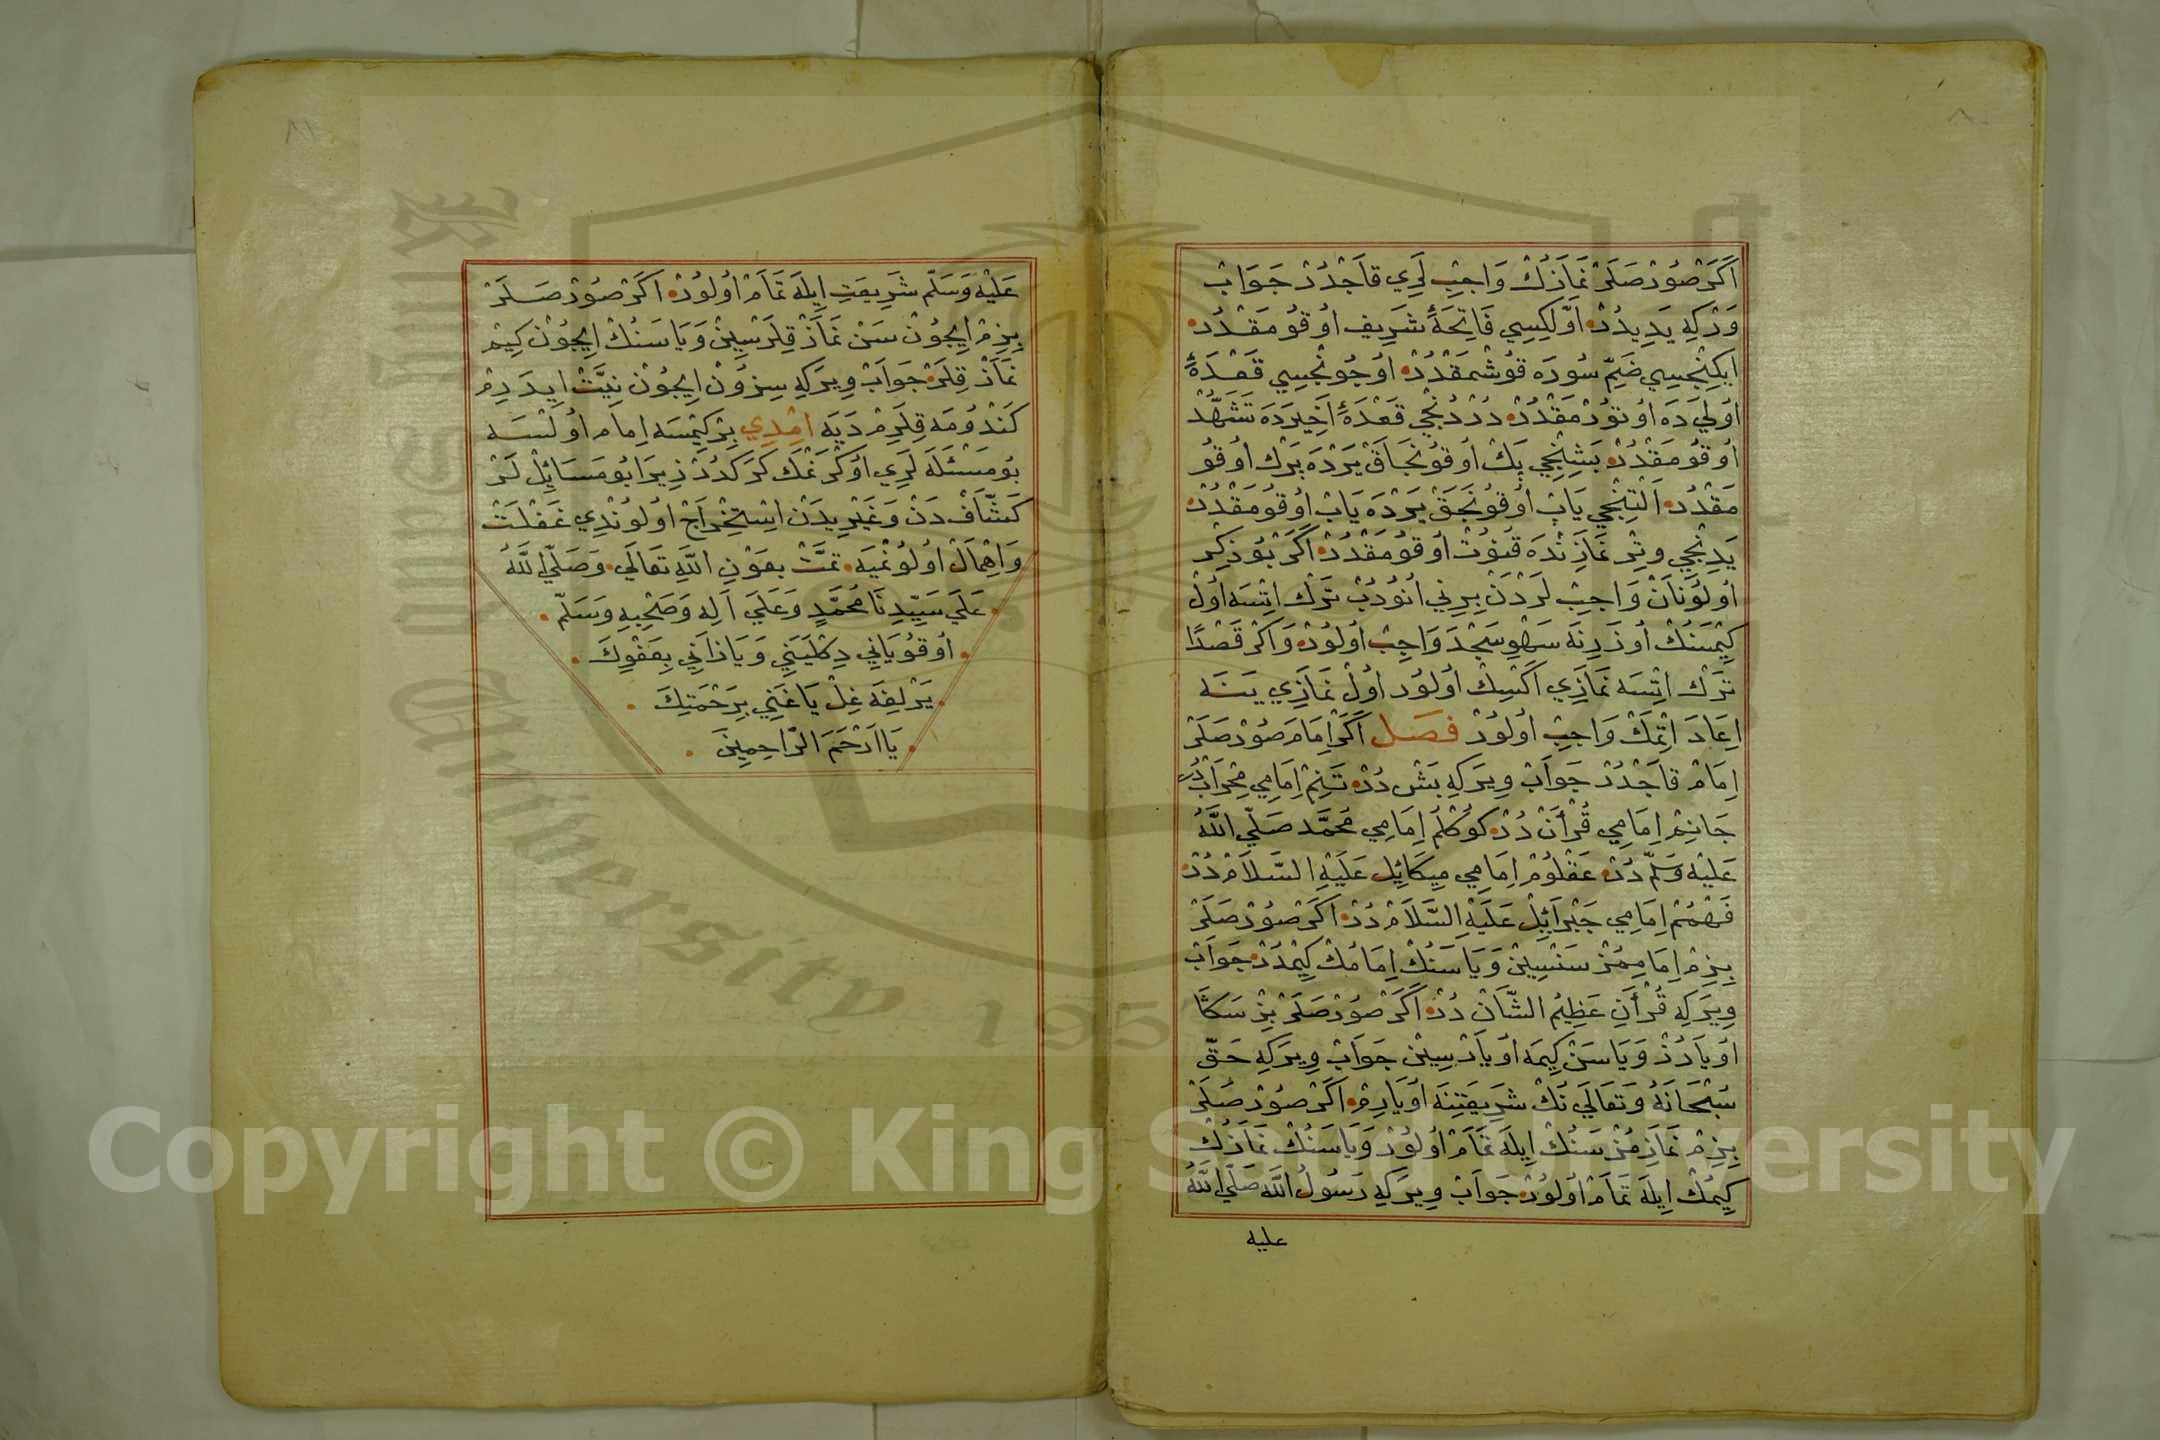 اَكَرْ صُورْصَلَرْ نَمَازَكْ وَاجِبْ لَرِي قَاجْدُرْ جَوَابْ
وَرْكِه يَدِيدُرْ اَوَّلكِسِي فَاتِحَۀِ شَرِيف اُوقُومَقْدُرْ
اِيكِنْجِسِي ضَمِّ سُورَه قُوشْمَقْدُرْ اُوجُونْجِسِي قَعْدَۀِ
اُولَيدَه اُوتُورْمَقْدُرْ دُرْدُنْجِي قَعْدَۀِ اَخِيرَدَه تَشَهُّدْ
اُوقُومَقْدُرْ بَشِنْجِي بَكْ اُوقُونَجَاقْ يَرْدَه بَرْك اُوقُو
مَقْدُرْ اَلْتِنْجِي يَابْ اُوقُونَجَقْ يَرْدَه يَابْ اُوقُومَقْدُرْ
يَدِنْجِي وِتِرْ نَمَازِنْدَه قُنُوتْ اُوقُومَقْدُرْ اَكَرْ بُو ذِكِرْ
اُولُونَانْ وَاجِبْ لَرْدَنْ بِرِنِي اُنُودُبْ تَرْك اِتْسَه اُولْ
كِيْمَسَنُكْ اُوزَرِنَه سَهْو سَجْدَ وَاجِبْ اُولُورْ وَاكَرْ قَصْدًا
تَرْك اِتْسَه نَمَازِي اَكْسِكْ اُولُور اُولْ نَمَازِي يَنَه
اِعَادَ اِتْمَكْ وَاجِبْ اُولُورْ فصل اَكَرْ اِمَامَ صُورْصَلَرْ
اِمَامْ قَاجْدُرْ جَوَابْ وِيرَكِه بَشْ دُرْ تَنِمْ اِمَامِي مِحْرَابْ دُرْ
جَانِمْ اِمَامِي قُرْأَنْ دُرْ كُوكْلُمْ اِمَامِي مُحَمَّد صَلَّي اللَّهُ
عَلَيْه وَسَلَّمْ دُرْ عَقْلُومْ اِمَامِي مِيكَائِيل عَلَيْهِ السَّلَامْ دُرْ
فَهْمُمْ اِمَامِي جَبْرَائِيلْ عَلَيْهِ السَّلَامْ دُرْ اَكَرْ صُورْصَلَرْ
بِزِمْ اِمَامِمُزْ سَنْسِينْ وَيَا سَنُكْ اِمَامُكْ كِيْمْدُرْ جَوَابْ
وِيرَكِه قُرْأَنِ عَظِيمُ الشَّانْ دُرْ اَكَرْ صُورْصَلَرْ بِزْ سَكَا
اُويَارُزْ وَيَا سَنْ كِيمَه اُويَارْسِينْ جَوَابْ وِيرَكِه حَقّ
سُبْحَانَهُ وَتَعَالَي نَكْ شَرِيعَتِنَه اُويَارِمْ اَكَرْ صُورْصَلَرْ
بِزِمْ نَمَازِمُزْ سَنُكْ اِيلَه تَمَامْ اُولُورْ وَيَا سَنُكْ نَمَازُكْ
كِيمُكْ اِيلَه تَمَامْ اُولُورْ جَوَابْ وِيرَكِه رَسُولُ اللَّه صَلَّي اللَّهُ
عليه
عَلَيْه وَسَلَّمْ شَرِيعَتِ اِيلَه تَمَامْ اُولُورْ اَكَرْ صُورْصَلَرْ
بِزِمْ اِيجُونْ سَنْ نَمَازْ قِلَرْسِينْ وَيَا سَنُكْ اِيجُونْ كِيْم
نَمَازْ قِلَرْ جَوَابْ وِيرَكِه سِزُونْ اِيجُونْ نِيَّتْ اِيدَرِمْ
كَنْدُومَه قِلَرِمْ دَيَه اِمْدِي بِرْكِيمْسَه اِمَام اُولْسَه
بُومَسْئَلَه لَرِي اُوكْرَنْمَك كَرَكدُرْ زِيرَا بُومَسَائِلْ لَرْ
كَشَّافْ دَنْ وَغَيْرِيدَنْ اِسْتِخْرَاجْ اُولُونْدِي غَفْلَتْ
وَاِهْمَالْ اُولُونْمَيَه تَمَّتْ بِعَوْنِ اللَّهِ تَعَالَي وَصَلَّي اللَّهُ
عَلَي سَيِّدِنَا مُحَمَّدٍ وَعَلَي اَلِه وَصَحْبِهِ وَسَلَّمْ
اُوقُويَانِي دِكْلَيَنِي وَيَازَانِي بِعَفْوِكَ
يَرْلِغَه غِلْ يَا غَنِي بِرَحْمَتِكَ
يَا اَرْحَمَ الرَّاحِمِينَ
Copyright © King Saud University
King Saud University 1957